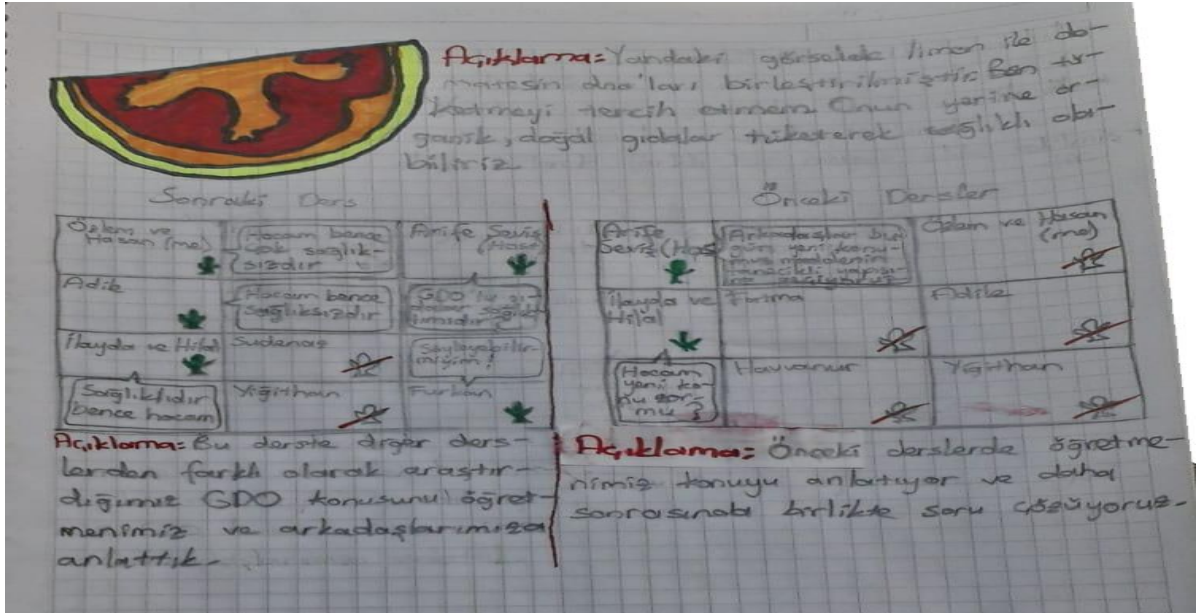 Açıklama: Yandaki görselde limon ile do-
matesin dna'ları birleştirilmiştir. Ben tü-
ketmeyi tercih etmem. Onun yerine or-
ganik, doğal gıdalar tüketerek sağlıklı ola-
biliriz.
Sonraki Ders
Özlem ve
Hasan (me)
Hocam bence
çok sağlık-
sızdır
Arife Seviş
(Hasé
Adile
Hocam bence
sağlıksızdır
GDO'lu gı-
dalar sağlık-
lımıdır?
İlayda ve Hilal
Sudenaz
Söyleyebilir-
miyim!
Sağlıklıdır
bence hocam
Yiğithan
Furkan
Açıklama: Bu derste diğer ders-
lerden farklı olarak araştır-
dığımız GDO konusunu öğret-
menimiz ve arkadaşlarımıza
anlattık.
Önceki Dersler
Arife
Seviş (Has
Arkadaşlar bu
gün yeni konu-
muz maddenin
tanecikli yapısı-
Özlem ve Hasan
(me)
İlayda ve
Hilal
Fatma
Adile
Hocam
yeni ko-
nu zor
mu?
Havvanur
Yiğithan
Açıklama: Önceki derslerde öğretme-
nimiz konuyu anlatıyor ve daha
sonrasında birlikte soru çözüyoruz.